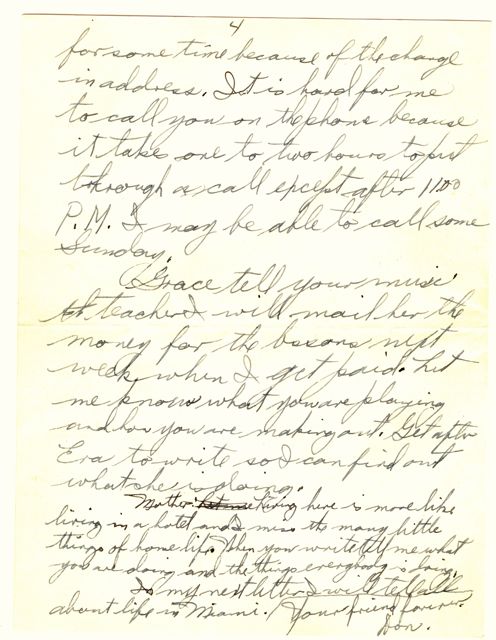 4
for some time because of the change
in address. It is hard for me
to call you on the phone because
it take one to two hours to put
through a call except after 11:00
P.M. I may be able to call some
Sunday.
Grace tell your music
teacher I will mail her the
money for the lessons next
week, when I get paid. Let
me know what you are playing
and how you are making out. Get after
Era to write so I can find out
what she is doing.
Mother living here is more like
living in a hotel and I miss the many little
things of home life. When you write tell me what
you are doing and the things everybody is doing.
In my next letter I will tell all
about life in Miami. Your friend forever.
Don.